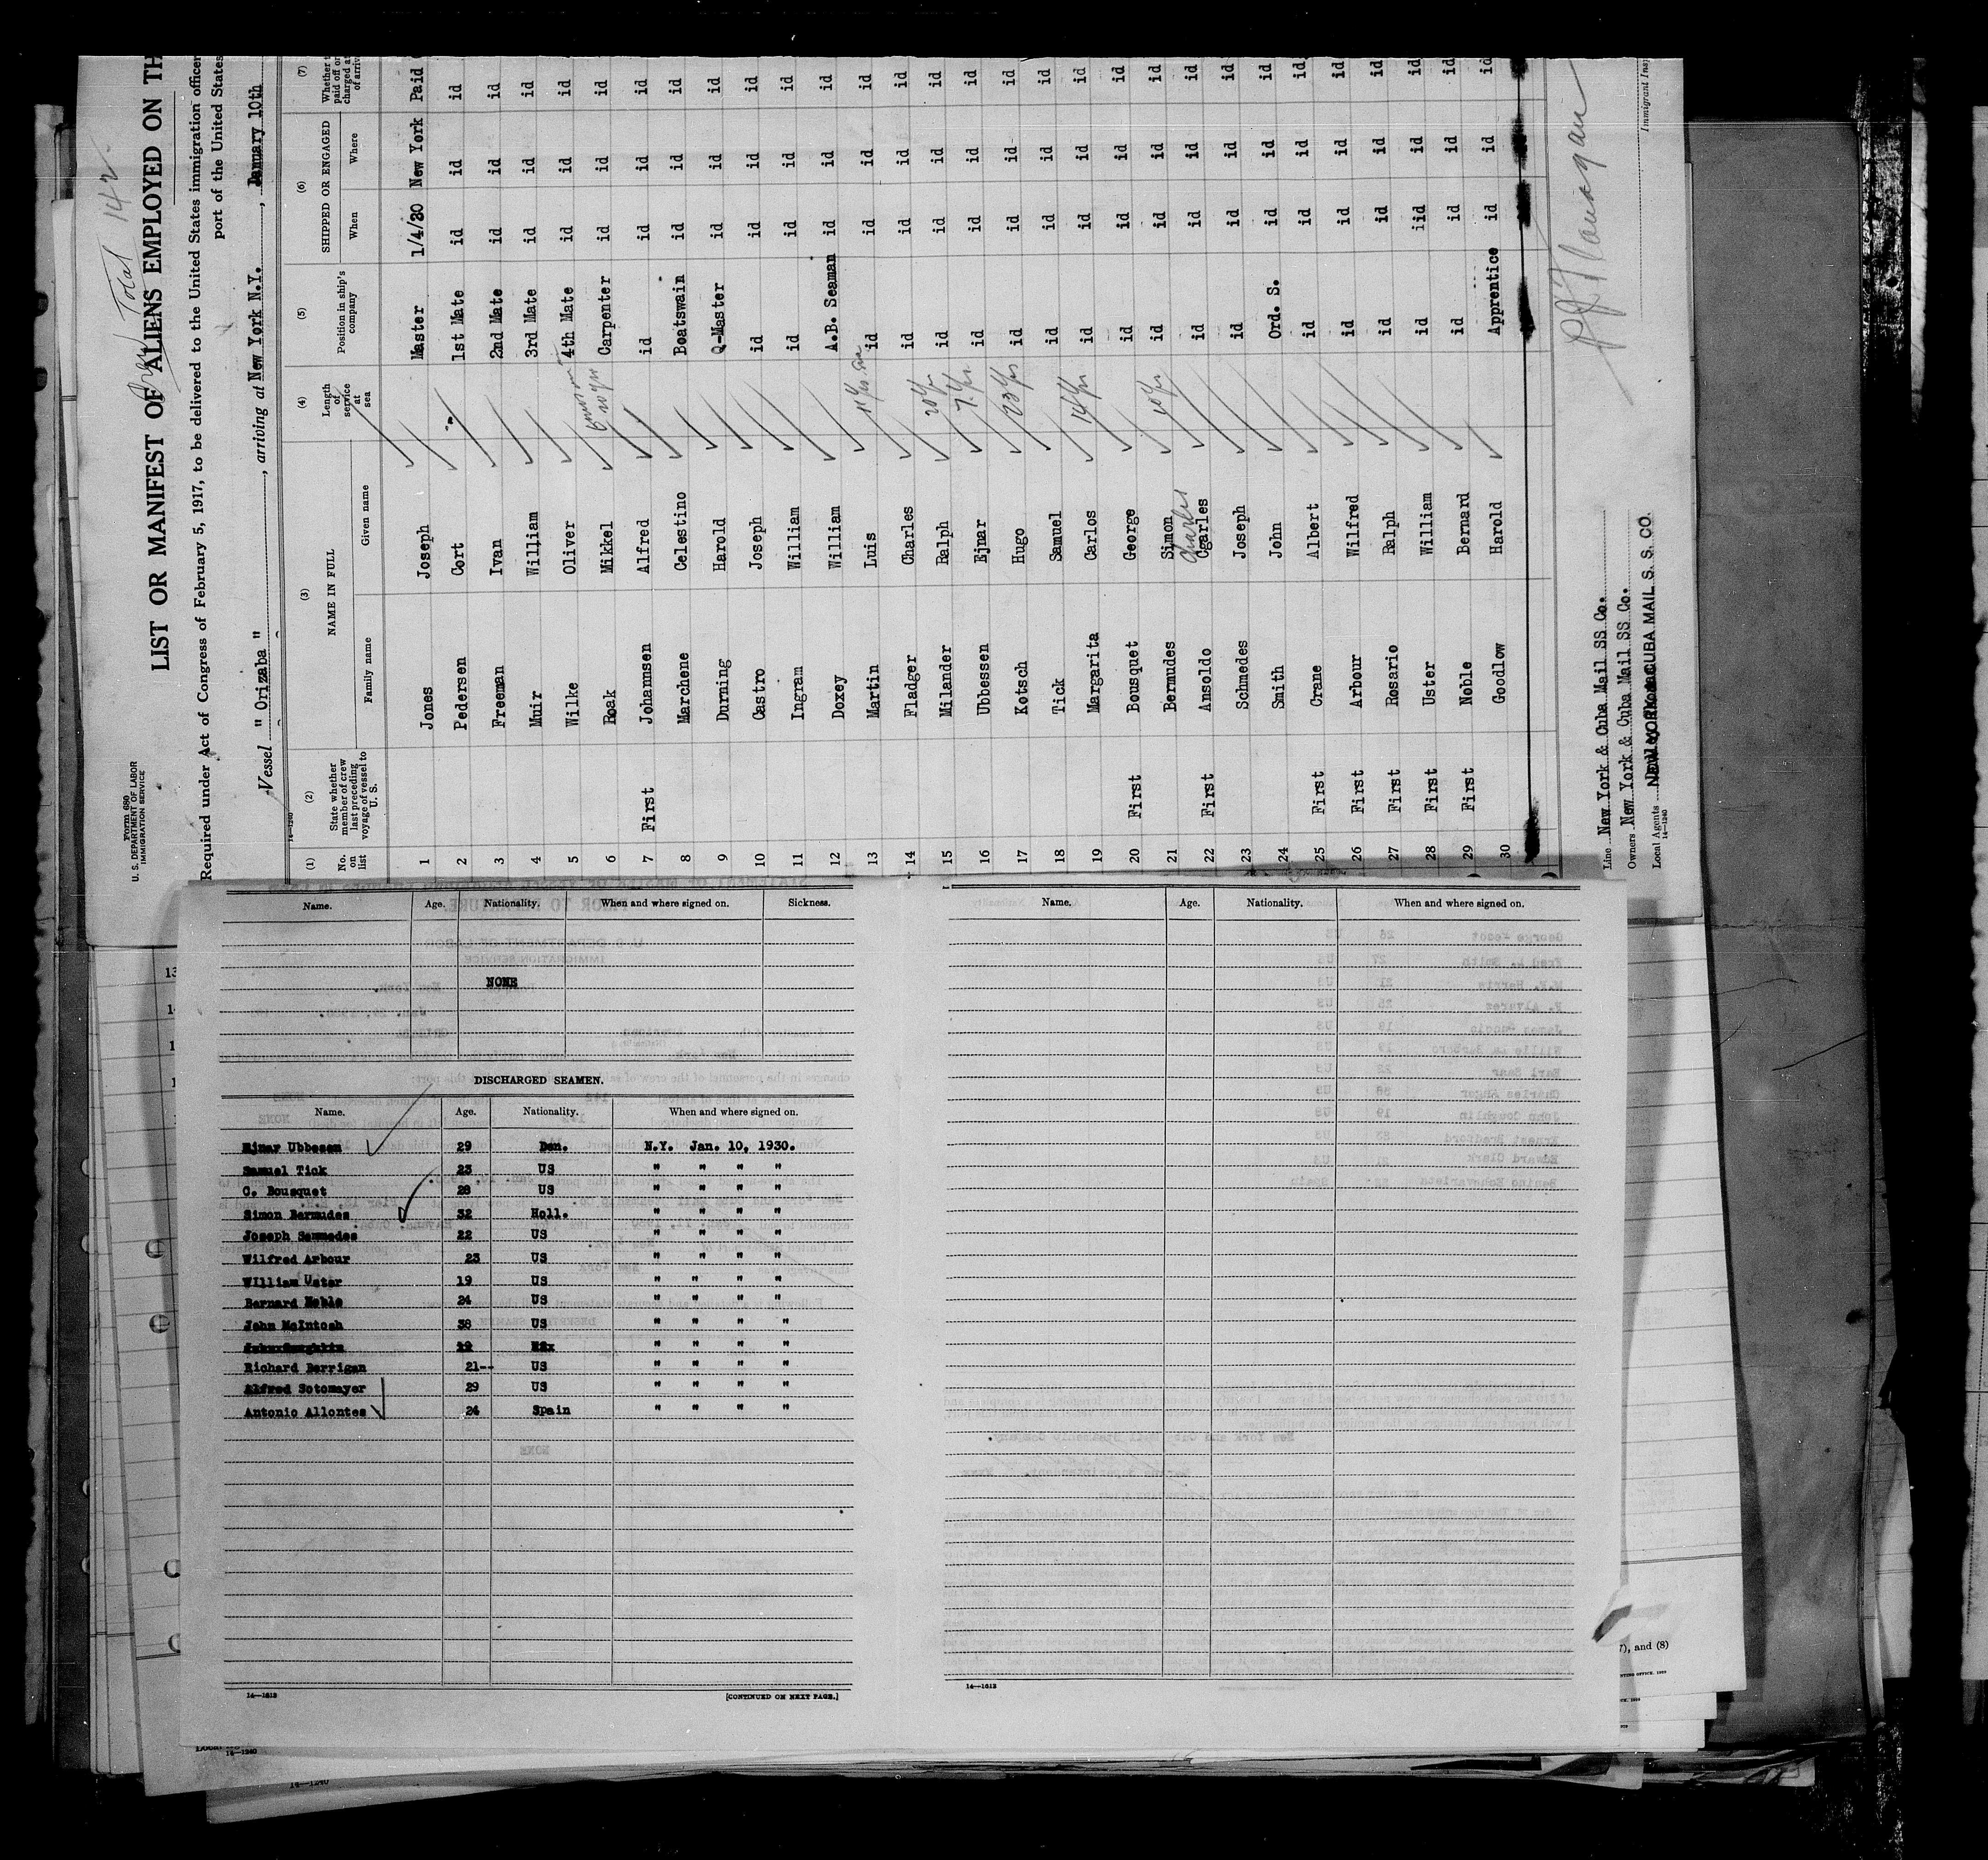 Form 680
U. S. DEPARTMENT OF LABOR
IMMIGRATION SERVICE
Total 142
LIST OR MANIFEST OF ALIENS EMPLOYED ON TH
Required under Act of Congress of February 5, 1917, to be delivered to the United States immigration officer
port of the United States
Vessel " Orizaba " , arriving at New York N.Y. , January 10th
14—1240
(1) (2) (3) (4) (5) (6) (7)
No. on list State whether member of crew last preceding voyage of vessel to U. S. NAME IN FULL Length of service at sea Position in ship's company SHIPPED OR ENGAGED
Family name Given name When Where
1 Jones Joseph Master 1/4/30 New York Paid
2 Pedersen Cort 1st Mate id id id
3 Freeman Ivan 2nd Mate id id id
4 Muir William 3rd Mate id id id
5 Wilke Oliver 4th Mate id id id
6 Roak Mikkel 10 yrs Carpenter id id id
7 First Johannsen Alfred id id id id
8 Marchene Celestino Boatswain id id id
9 Durning Harold Q-Master id id id
10 Castro Joseph id id id id
11 Ingram William id id id id
12 Doxey William A.B. Seaman id id id
13 Martin Luis id id id id
14 Fladger Charles id id id id
15 Milander Ralph 20 yrs id id id id
16 Ubbessen Ejnar 7 yrs id id id id
17 Kotsch Hugo 23 yrs id id id id
18 Tick Samuel id id id id
19 Margarita Carlos 14 yrs id id id id
20 First Bousquet George id id id id
21 Bermudes Simon 10 yrs id id id id
22 First Ansoldo Cgarles Charles id id id id
23 Schmedes Joseph id id id id
24 Smith John Ord. S. id id id
25 First Crane Albert id id id id
26 First Arbour Wilfred id id id id
27 First Rosario Ralph id id id id
28 First Uster William id iid id id
29 First Noble Bernard id id id id
30 Goodlow Harold Apprentice id id id
Line New York & Cuba Mail SS Co.
Owners New York & Cuba Mail SS Co.
Local Agents NEW YORK & CUBA MAIL S. S. CO.
14—1240
Immigrant Insp
Name. Age. Nationality. When and where signed on. Sickness.
NONE
DISCHARGED SEAMEN.
Name. Age. Nationality. When and where signed on.
Ejnar Ubbesen 29 Den. N.Y. Jan. 10, 1930.
Samuel Tick 23 US " " " "
C. Bousquet 28 US " " " "
Simon Bermudes 32 Holl. " " " "
Joseph Semmedes 22 US " " " "
Wilfred Arbour 23 US " " " "
William Uster 19 US " " " "
Bernard Noble 24 US " " " "
John McIntosh 38 US " " " "
" " " "
Richard Berrigan 21-- US " " " "
Alfred Sotomayer 29 US " " " "
Antonio Allontes 24 Spain " " " "
14—1613
[CONTINUED ON NEXT PAGE.]
Name. Age. Nationality. When and where signed on.
14—1613
7), and (8)
14—1240
14—1240